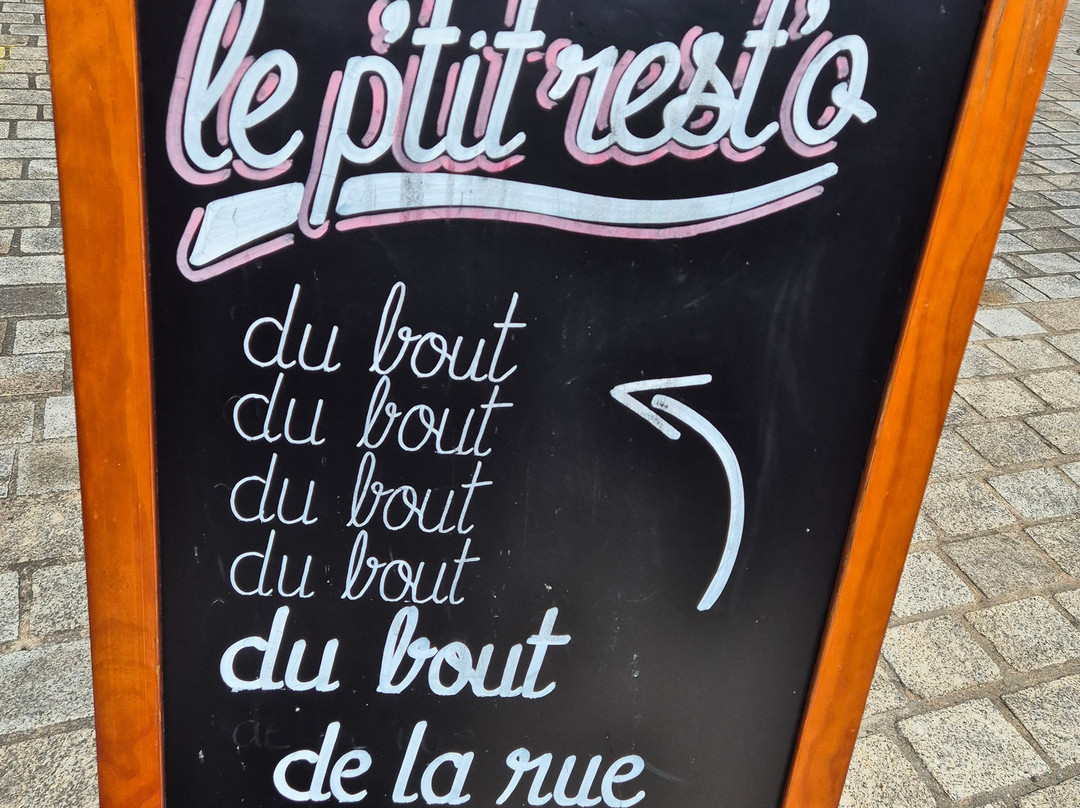 le p'tit rest'o
du bout
du bout
du bout
du bout
du bout
de la rue